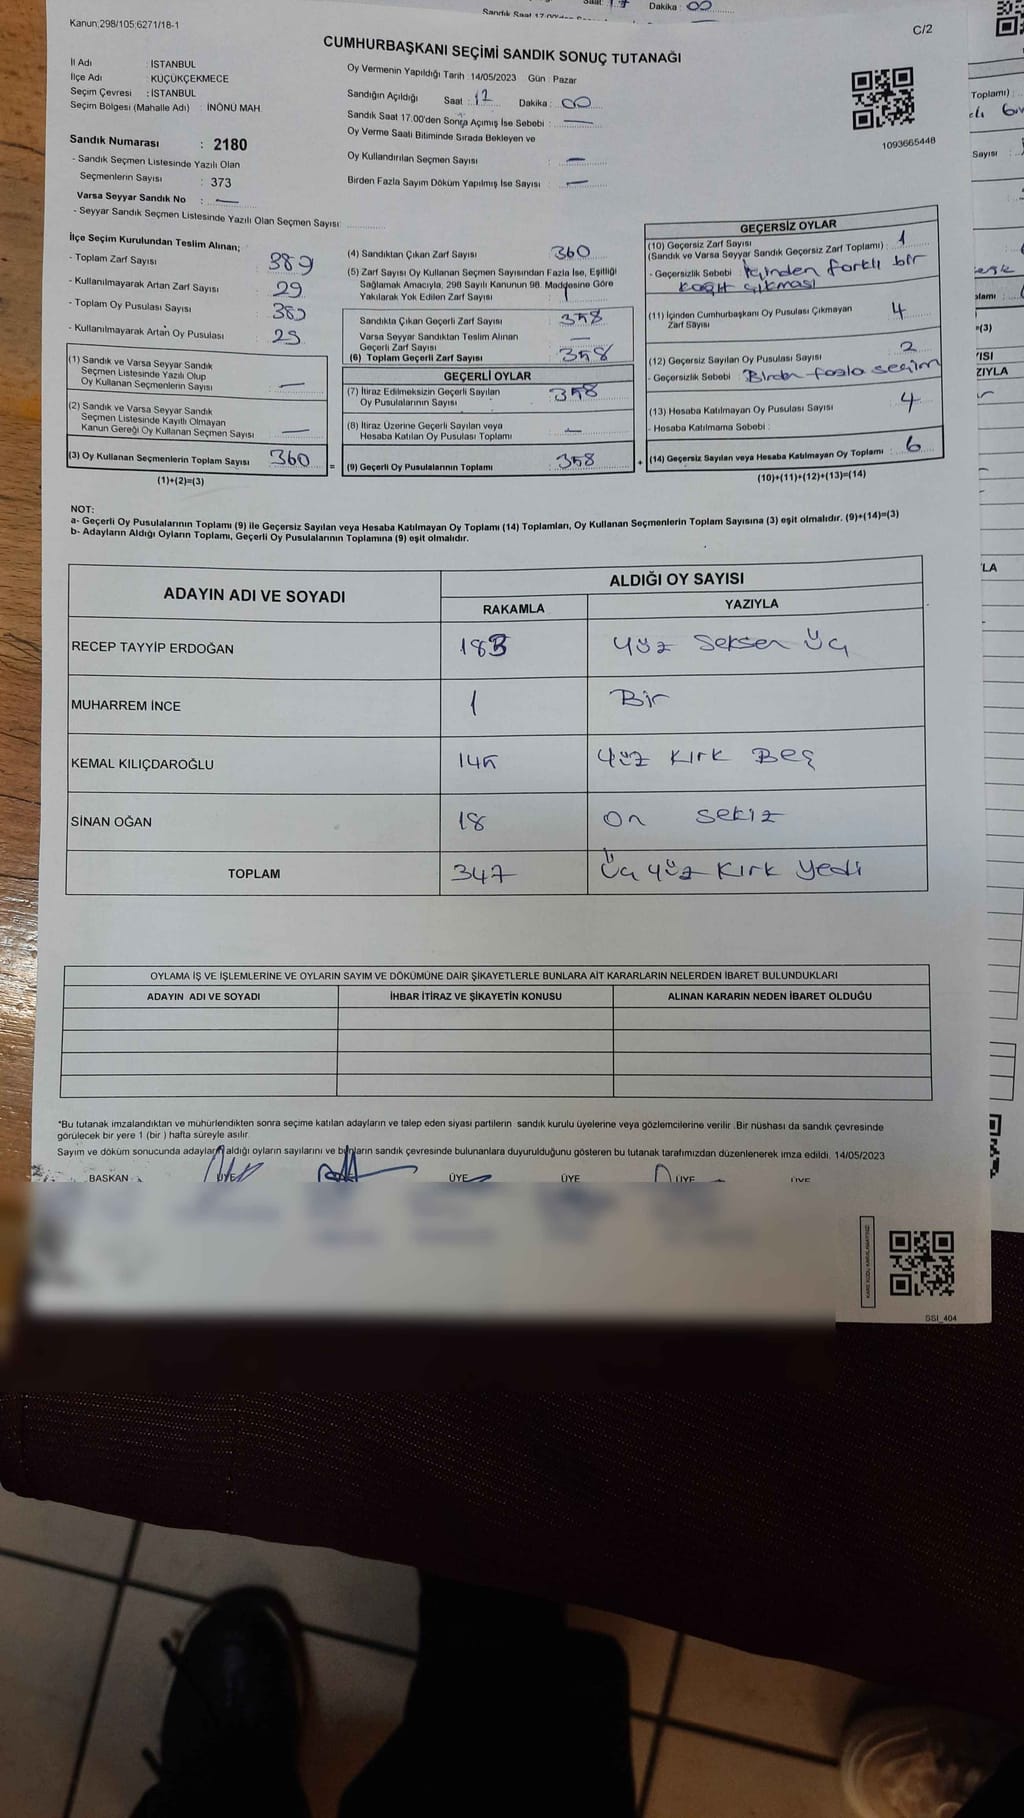 Kanun;298/105;6271/18-1
C/2
CUMHURBAŞKANI SEÇİMİ SANDIK SONUÇ TUTANAĞI
İl Adı : İSTANBUL
İlçe Adı : KÜÇÜKÇEKMECE
Seçim Çevresi : İSTANBUL
Seçim Bölgesi (Mahalle Adı) : İNÖNÜ MAH.
Oy Vermenin Yapıldığı Tarih : 14/05/2023 Gün : Pazar
Sandığın Açıldığı Saat : 17 Dakika : 00
Sandık Saat 17.00'den Sonra Açımış İse Sebebi : —
Oy Verme Saati Bitiminde Sırada Bekleyen ve
Oy Kullandırılan Seçmen Sayısı : —
Birden Fazla Sayım Döküm Yapılmış İse Sayısı : —
1093665448
Sandık Numarası : 2180
- Sandık Seçmen Listesinde Yazılı Olan
Seçmenlerin Sayısı : 373
Varsa Seyyar Sandık No : —
- Seyyar Sandık Seçmen Listesinde Yazılı Olan Seçmen Sayısı:
İlçe Seçim Kurulundan Teslim Alınan;
- Toplam Zarf Sayısı 389
- Kullanılmayarak Artan Zarf Sayısı : 29
- Toplam Oy Pusulası Sayısı :
- Kullanılmayarak Artan Oy Pusulası :
(1) Sandık ve Varsa Seyyar Sandık
Seçmen Listesinde Yazılı Olup
Oy Kullanan Seçmenlerin Sayısı : —
(2) Sandık ve Varsa Seyyar Sandık
Seçmen Listesinde Kayıtlı Olmayan
Kanun Gereği Oy Kullanan Seçmen Sayısı : —
(3) Oy Kullanan Seçmenlerin Toplam Sayısı : 360
(1)+(2)=(3)
(4) Sandıktan Çıkan Zarf Sayısı : 360
(5) Zarf Sayısı Oy Kullanan Seçmen Sayısından Fazla İse, Eşitliği
Sağlamak Amacıyla, 298 Sayılı Kanunun 98. Maddesine Göre
Yakılarak Yok Edilen Zarf Sayısı :
Sandıkta Çıkan Geçerli Zarf Sayısı : 358
Varsa Seyyar Sandıktan Teslim Alınan
Geçerli Zarf Sayısı : —
(6) Toplam Geçerli Zarf Sayısı : 358
GEÇERLİ OYLAR
(7) İtiraz Edilmeksizin Geçerli Sayılan
Oy Pusulalarının Sayısı : 358
(8) İtiraz Üzerine Geçerli Sayılan veya
Hesaba Katılan Oy Pusulası Toplamı : —
=
(9) Geçerli Oy Pusulalarının Toplamı : 358
+
GEÇERSİZ OYLAR
(10) Geçersiz Zarf Sayısı
(Sandık ve Varsa Seyyar Sandık Geçersiz Zarf Toplamı) : 1
- Geçersizlik Sebebi : içinden farklı bir
kağıt çıkması
(11) İçinden Cumhurbaşkanı Oy Pusulası Çıkmayan
Zarf Sayısı : 4
(12) Geçersiz Sayılan Oy Pusulası Sayısı : 2
- Geçersizlik Sebebi : Birden fazla seçim
(13) Hesaba Katılmayan Oy Pusulası Sayısı : 4
- Hesaba Katılmama Sebebi :
(14) Geçersiz Sayılan veya Hesaba Katılmayan Oy Toplamı : 6
(10)+(11)+(12)+(13)=(14)
NOT:
a- Geçerli Oy Pusulalarının Toplamı (9) ile Geçersiz Sayılan veya Hesaba Katılmayan Oy Toplamı (14) Toplamları, Oy Kullanan Seçmenlerin Toplam Sayısına (3) eşit olmalıdır. (9)+(14)=(3)
b- Adayların Aldığı Oyların Toplamı, Geçerli Oy Pusulalarının Toplamına (9) eşit olmalıdır.
ADAYIN ADI VE SOYADI
ALDIĞI OY SAYISI
RAKAMLA YAZIYLA
RECEP TAYYİP ERDOĞAN 183 Yüz Seksen Üç
MUHARREM İNCE 1 Bir
KEMAL KILIÇDAROĞLU 145 Yüz Kırk Beş
SİNAN OĞAN 18 On Sekiz
TOPLAM 347 Üç yüz Kırk Yedi
OYLAMA İŞ VE İŞLEMLERİNE VE OYLARIN SAYIM VE DÖKÜMÜNE DAİR ŞİKAYETLERLE BUNLARA AİT KARARLARIN NELERDEN İBARET BULUNDUKLARI
ADAYIN ADI VE SOYADI İHBAR İTİRAZ VE ŞİKAYETİN KONUSU ALINAN KARARIN NEDEN İBARET OLDUĞU
*Bu tutanak imzalandıktan ve mühürlendikten sonra seçime katılan adayların ve talep eden siyasi partilerin sandık kurulu üyelerine veya gözlemcilerine verilir .Bir nüshası da sandık çevresinde
görülecek bir yere 1 (bir ) hafta süreyle asılır.
Sayım ve döküm sonucunda adayların aldığı oyların sayılarını ve bunların sandık çevresinde bulunanlara duyurulduğunu gösteren bu tutanak tarafımızdan düzenlenerek imza edildi. 14/05/2023
BAŞKAN ÜYE ÜYE ÜYE ÜYE ÜYE
SSİ_404